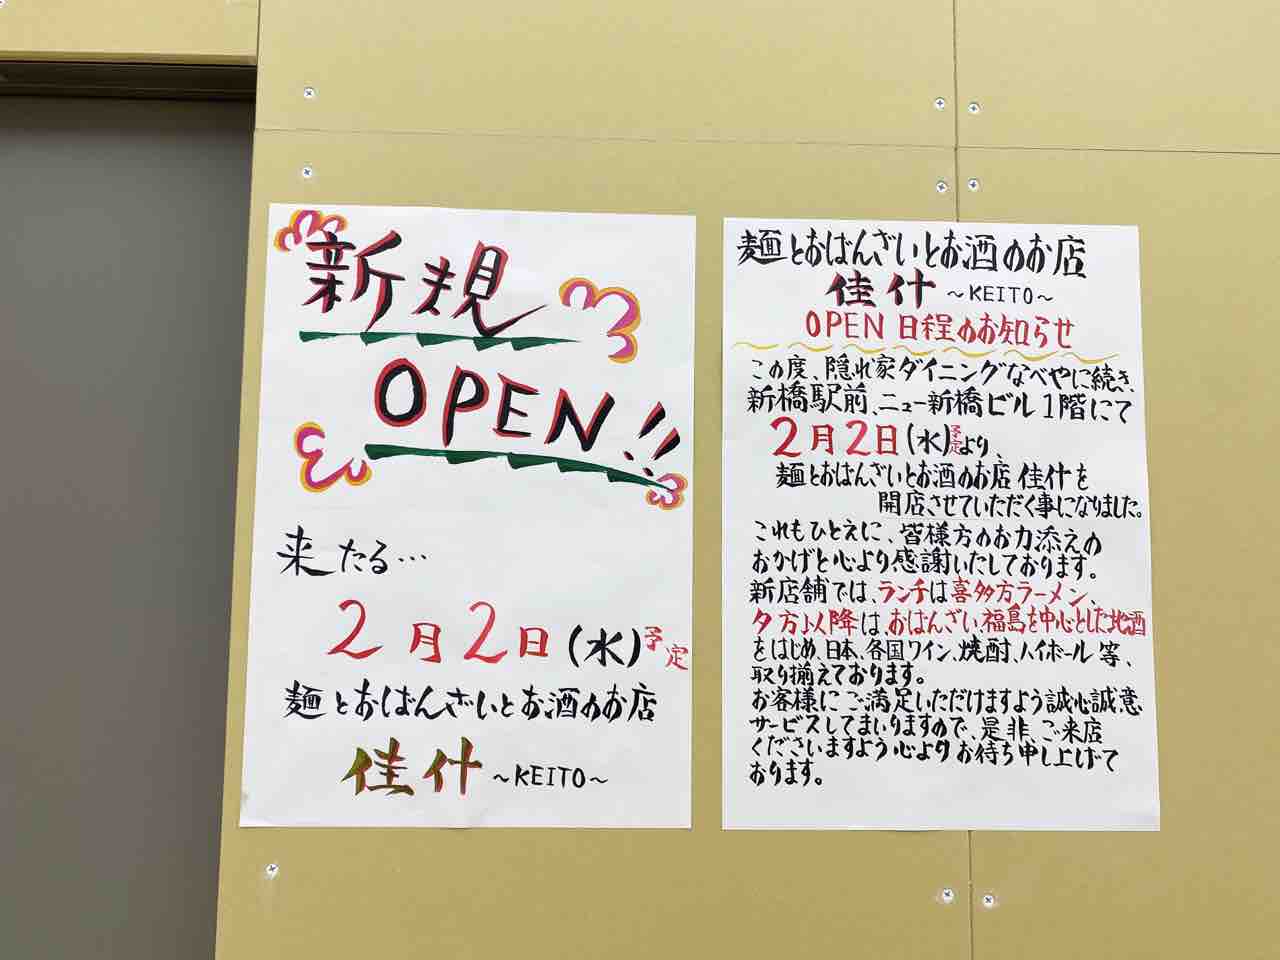 新規
OPEN!!
来たる…
2月2日(水)予定
麺とおばんざいとお酒のお店
佳什 ～KEITO～
麺とおばんざいとお酒のお店
佳什 ～KEITO～
OPEN 日程のお知らせ
この度、隠れ家ダイニングなべやに続き、
新橋駅前、ニュー新橋ビル1階にて
2月2日(水)予定より、
麺とおばんざいとお酒のお店 佳什を
開店させていただく事になりました。
これもひとえに、皆様方のお力添えの
おかげと心より感謝いたしております。
新店舗では、ランチは喜多方ラーメン、
夕方以降は、おばんざい、福島を中心とした地酒
をはじめ、日本、各国ワイン、焼酎、ハイボール等、
取り揃えております。
お客様にご満足いただけますよう誠心誠意
サービスしてまいりますので、是非、ご来店
くださいますよう心よりお待ち申し上げて
おります。